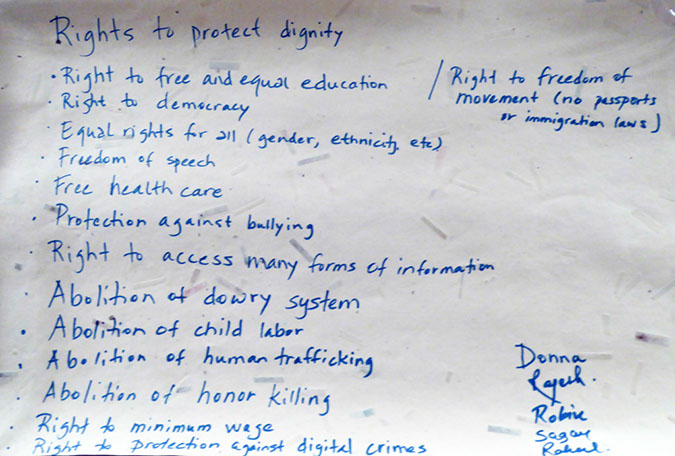 Rights to protect dignity
· Right to free and equal education
· Right to democracy
· Equal rights for all (gender, ethnicity, etc)
· Freedom of speech
· Free health care
· Protection against bullying
· Right to access many forms of information
· Abolition of dowry system
· Abolition of child labor
· Abolition of human trafficking
· Abolition of honor killing
· Right to minimum wage
· Right to protection against digital crimes
/ Right to freedom of
movement (no passports
or immigration laws)
Donna
Rajesh
Robin
Sagar